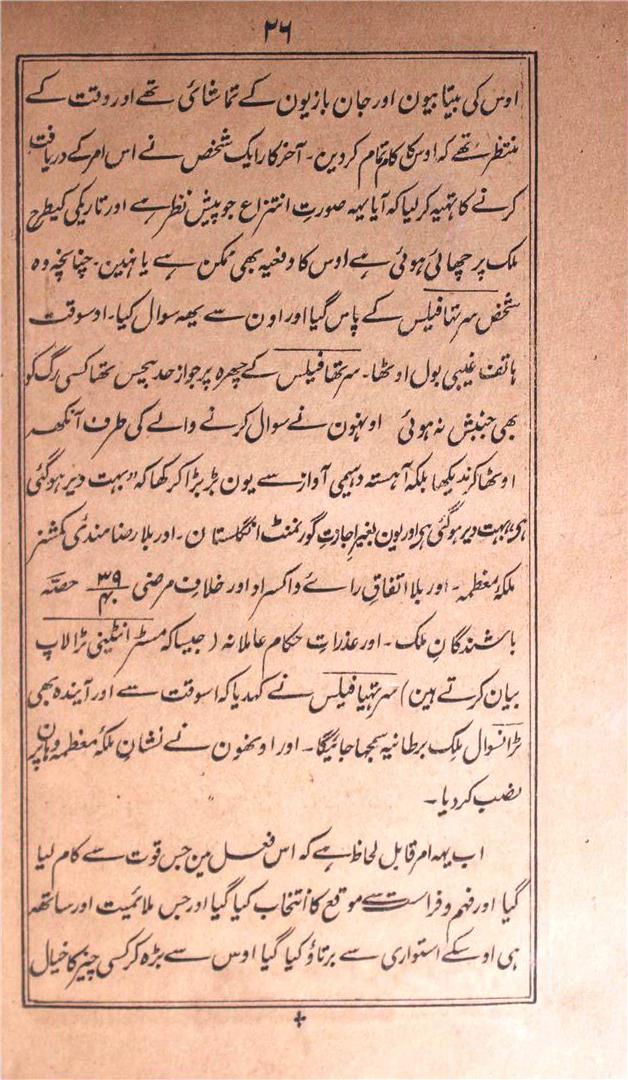 ۲۶
اوس کی بیتابیون اور جان بازیون کے تماشائی تھے اور وقت کے
منتظر تھے کہ اوس کا کام تمام کردین۔ آخر کار ایک شخص نے اس امر کے دریافت
کرنے کا تہیہ کر لیا کہ آیا یہہ صورتِ انتزاع جو پیش نظر ہے اور تاریکی کیطرح
ملک پر چھائی ہوئی ہے اوس کا دفعیہ بھی ممکن ہے یا نہین۔ چنانچہ وہ
شخص سر تہا فیلس کے پاس گیا اور اون سے یہہ سوال کیا۔ اوسوقت
ہاتف غیبی بول اوٹھا۔ سر تھا فیلس کے چہرہ پر جو از حد بیحس تھا کسی رگ کو
بھی جنبش نہ ہوئی اونہون نے سوال کرنے والے کی طرف آنکھہ
اوٹھا کر ندیکھا بلکہ آہستہ دہیمی آواز سے یون بڑبڑا کر کھا کہ "بہت دیر ہوگئی
ہی بہت دیر ہوگئی ہی اور یون بغیر اجازتِ گورنمنٹ انگلستان۔ اور بلا رضامندی کمشنر
ملکہ معظمہ۔ اور بلا اتفاقِ رائے واکسراد اور خلافِ مرضی ۳۹/۴۰ حصّہ
باشندگانِ ملک۔ اور عذرات حکام عاملانہ (جیسا کہ مسٹر انٹینی ٹرالاپ
بیان کرتے ہین) سر تہیا فیلس نے کہدیا کہ اسوقت سے اور آیندہ بھی
ٹرانسوال ملِک برطانیہ سمجھا جائیگا۔ اور اوتھون نے نشانِ ملکہ معظمہ وہان پر
نصب کردیا۔
اب یہہ امر قابل لحاظ ہے کہ اس فعل مین جس قوت سے کام لیا
گیا اور فہم و فراست سے موقع کا انتخاب کیا گیا اور جس ملائمیت اور ساتھہ
ہی اوسکے استواری سے برتاؤ کیا گیا اوس سے بڑہ کر کسی چیز کا خیال